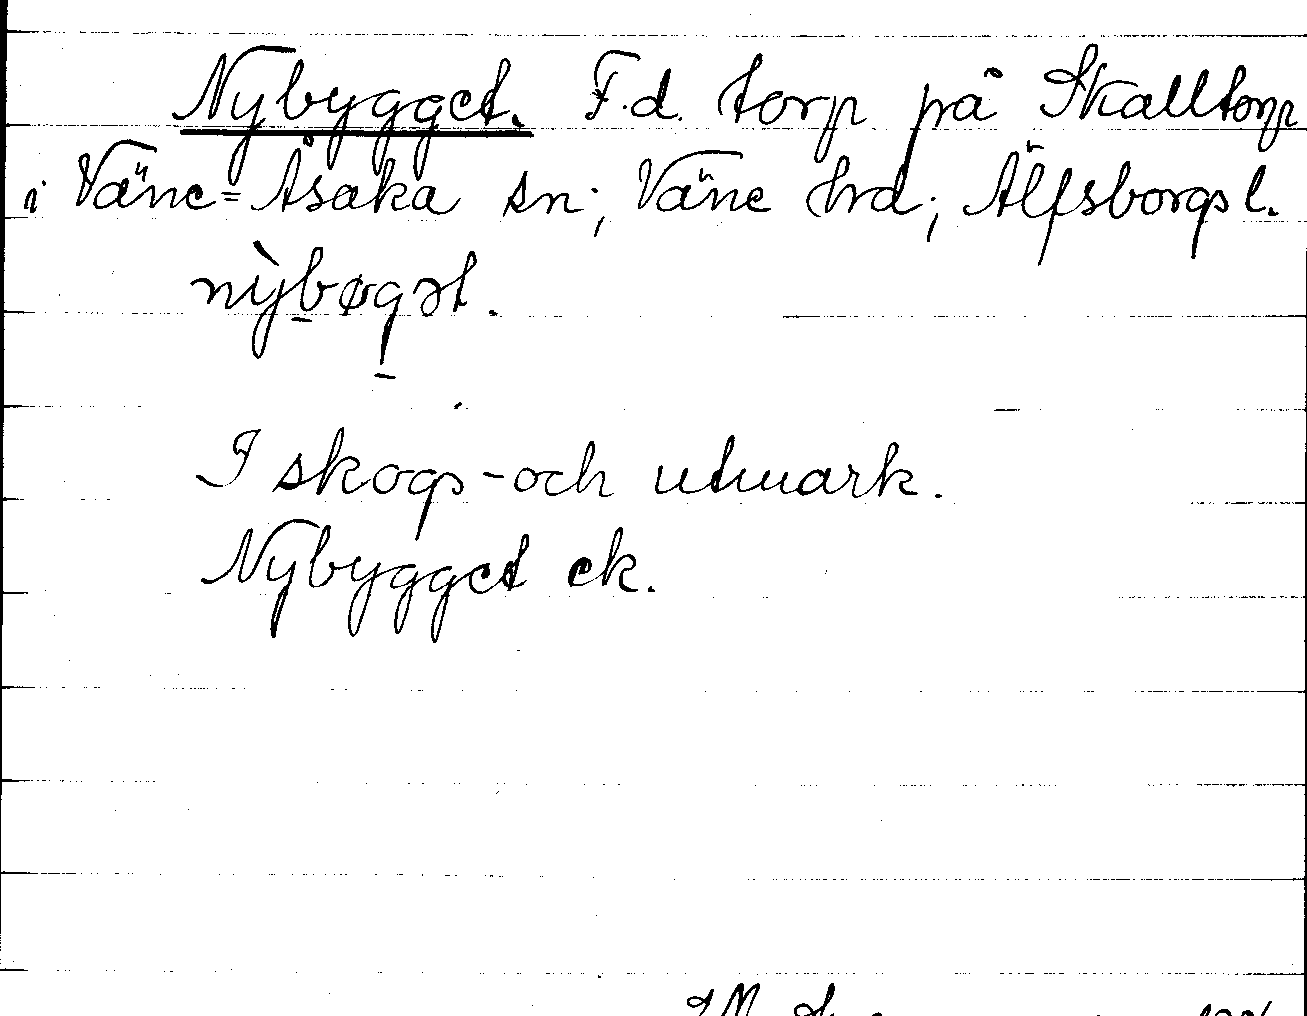 Nybygget. F.d. torp på Skalltorp
i Väne-Åsaka sn; Väne hrd; Älfsborgs l.
nỳbøgət.
I skogs- och utmark.
Nybygget ek.